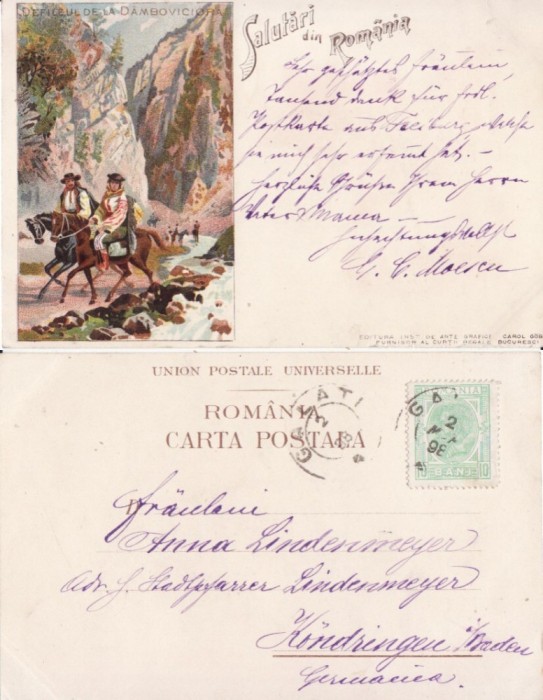 DEFILEUL DE LA DÂMBOVICIORA
Salutări
din România
Sehr geschätztes Fräulein,
tausend Dank für frdl.
Postkarte aus Freiburg, welche
sie mich sehr erfreut hat. —
Herzliche Grüsse Ihrem Herrn
Vater, Mama —
Hochachtungsvollst
G. C. Moescu
EDITURA INST. DE ARTE GRAFICE CAROL GÖB
FURNISOR AL CURȚII REGALE BUCURESCI
UNION POSTALE UNIVERSELLE
ROMÂNIA
CARTA POSTALĂ
GALATI
2
GAL
2
98
10 BANI 10
Fräulein
Anna Lindenmeyer
Adr. H. Stadtpfarrer Lindenmeyer
Köndringen i/Baden
Germania.